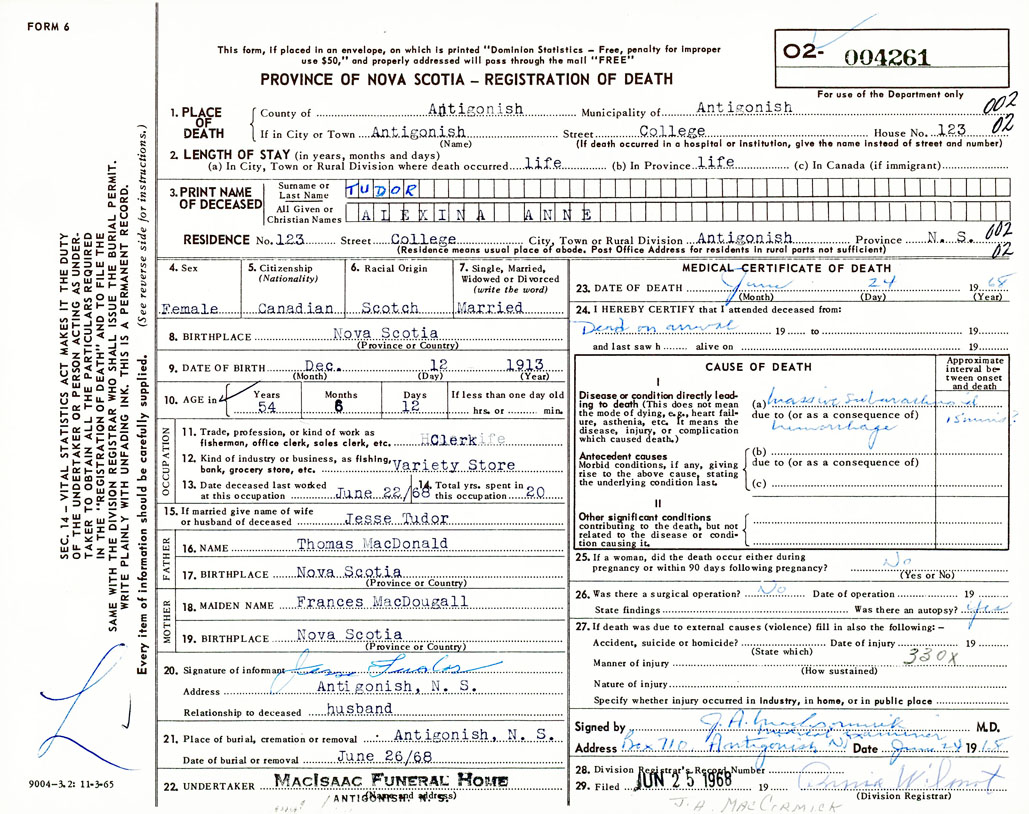 FORM 6
This form, if placed in an envelope, on which is printed "Dominion Statistics – Free, penalty for improper
use $50," and properly addressed will pass through the mail "FREE"
PROVINCE OF NOVA SCOTIA – REGISTRATION OF DEATH
02- 004261
For use of the Department only
1. PLACE OF DEATH
County of Antigonish Municipality of Antigonish 002
If in City or Town Antigonish Street College House No. 123 02
(Name) (If death occurred in a hospital or institution, give the name instead of street and number)
2. LENGTH OF STAY (in years, months and days)
(a) In City, Town or Rural Division where death occurred life (b) In Province life (c) In Canada (if immigrant)
3. PRINT NAME OF DECEASED
Surname or Last Name TUDOR
All Given or Christian Names ALEXINA ANNE
RESIDENCE No. 123 Street College City, Town or Rural Division Antigonish Province N. S. 002
(Residence means usual place of abode. Post Office Address for residents in rural parts not sufficient) 02
4. Sex
Female
5. Citizenship
(Nationality)
Canadian
6. Racial Origin
Scotch
7. Single, Married,
Widowed or Divorced
(write the word)
Married
8. BIRTHPLACE Nova Scotia
(Province or Country)
9. DATE OF BIRTH Dec. 12 1913
(Month) (Day) (Year)
10. AGE in Years Months Days If less than one day old
54 6 12 hrs. or min.
OCCUPATION
11. Trade, profession, or kind of work as
fisherman, office clerk, sales clerk, etc. Clerk
12. Kind of industry or business, as fishing,
bank, grocery store, etc. Variety Store
13. Date deceased last worked
at this occupation June 22/68
14. Total yrs. spent in
this occupation 20
15. If married give name of wife
or husband of deceased Jesse Tudor
FATHER
16. NAME Thomas MacDonald
17. BIRTHPLACE Nova Scotia
(Province or Country)
MOTHER
18. MAIDEN NAME Frances MacDougall
19. BIRTHPLACE Nova Scotia
(Province or Country)
20. Signature of informant Jesse Tudor
Address Antigonish, N. S.
Relationship to deceased husband
21. Place of burial, cremation or removal Antigonish, N. S.
Date of burial or removal June 26/68
22. UNDERTAKER MacIsaac Funeral Home
ANTIGONISH, N. S.
(Name and address)
MEDICAL CERTIFICATE OF DEATH
23. DATE OF DEATH June 24 1968
(Month) (Day) (Year)
24. I HEREBY CERTIFY that I attended deceased from:
Dead on arrival 19 to 19
and last saw h alive on 19
CAUSE OF DEATH
Approximate
interval be-
tween onset
and death
I
Disease or condition directly lead-
ing to death (This does not mean
the mode of dying, e.g., heart fail-
ure, asthenia, etc. It means the
disease, injury, or complication
which caused death.)
(a) massive subarachnoid 15 mins?
due to (or as a consequence of)
hemorrhage
Antecedent causes
Morbid conditions, if any, giving
rise to the above cause, stating
the underlying condition last.
(b)
due to (or as a consequence of)
(c)
II
Other significant conditions
contributing to the death, but not
related to the disease or condi-
tion causing it.
25. If a woman, did the death occur either during
pregnancy or within 90 days following pregnancy? No
(Yes or No)
26. Was there a surgical operation? No Date of operation 19
State findings Was there an autopsy? Yes
27. If death was due to external causes (violence) fill in also the following: –
Accident, suicide or homicide? Date of injury 19
(State which) 330X
Manner of injury
(How sustained)
Nature of injury
Specify whether injury occurred in Industry, in home, or in public place
Signed by J. A. MacCormick M.D.
medical examiner
Address Box 710 Antigonish NS Date June 24 1968
28. Division Registrar's Record Number
29. Filed JUN 25 1968 19 Annie Wilmot
(Division Registrar)
J. A. MACCORMICK
SEC. 14 – VITAL STATISTICS ACT MAKES IT THE DUTY
OF THE UNDERTAKER OR PERSON ACTING AS UNDER-
TAKER TO OBTAIN ALL THE PARTICULARS REQUIRED
IN THE "REGISTRATION OF DEATH" AND TO FILE THE
SAME WITH THE DIVISION REGISTRAR WHO SHALL ISSUE THE BURIAL PERMIT.
WRITE PLAINLY WITH UNFADING INK. THIS IS A PERMANENT RECORD.
Every item of information should be carefully supplied. (See reverse side for instructions.)
9004-3.2: 11-3-65